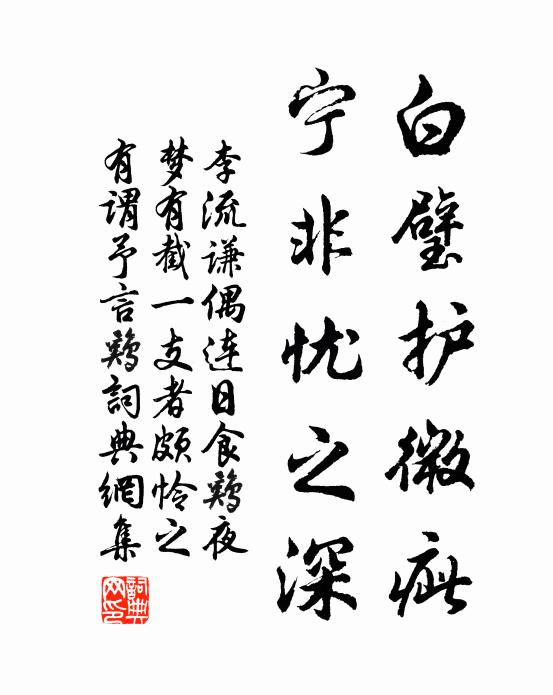 白璧护微疵
宁非忧之深
李流谦偶连日食鸡夜
梦有截一支者颇怜之
有谓予言鸡词典網集
詞典网印